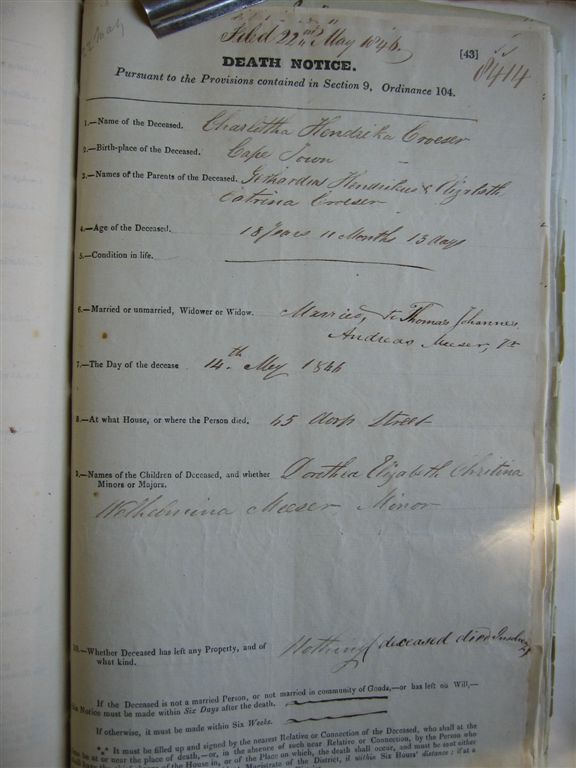 22 May
Filed 22nd May 1846
[43]
8414
DEATH NOTICE.
Pursuant to the Provisions contained in Section 9, Ordinance 104.
1.—Name of the Deceased. Charlottha Hendrika Croeser
2.—Birth-place of the Deceased. Cape Town —
3.—Names of the Parents of the Deceased. Hendrikus & Elizabeth
Catrina Croeser
4.—Age of the Deceased. 18 Years 11 Months 13 days
5.—Condition in life.
6.—Married or unmarried, Widower or Widow. Married, to Thomas Johannes
Andreas Meeser,
7.—The Day of the decease 14th Mey 1846
8.—At what House, or where the Person died. 45 dorp Street
9.—Names of the Children of Deceased, and whether Dorethea Elizabeth Christina
Minors or Majors.
Wilhelmina Meeser Minor
10.—Whether Deceased has left any Property, and of Nothing deceased died Insolvent
what kind.
If the Deceased is not a married Person, or not married in community of Goods,—or has left no Will,—
this Notice must be made within Six Days after the death.
If otherwise, it must be made within Six Weeks.
*** It must be filled up and signed by the nearest Relative or Connection of the Deceased, who shall at the
time be at or near the place of death,—or, in the absence of such near Relative or Connection, by the Person who
shall have the chief charge of the House in, or of the Place on which, the death shall occur, and must be sent either
Magistrate of the District, if within Six Hours' distance; if at a